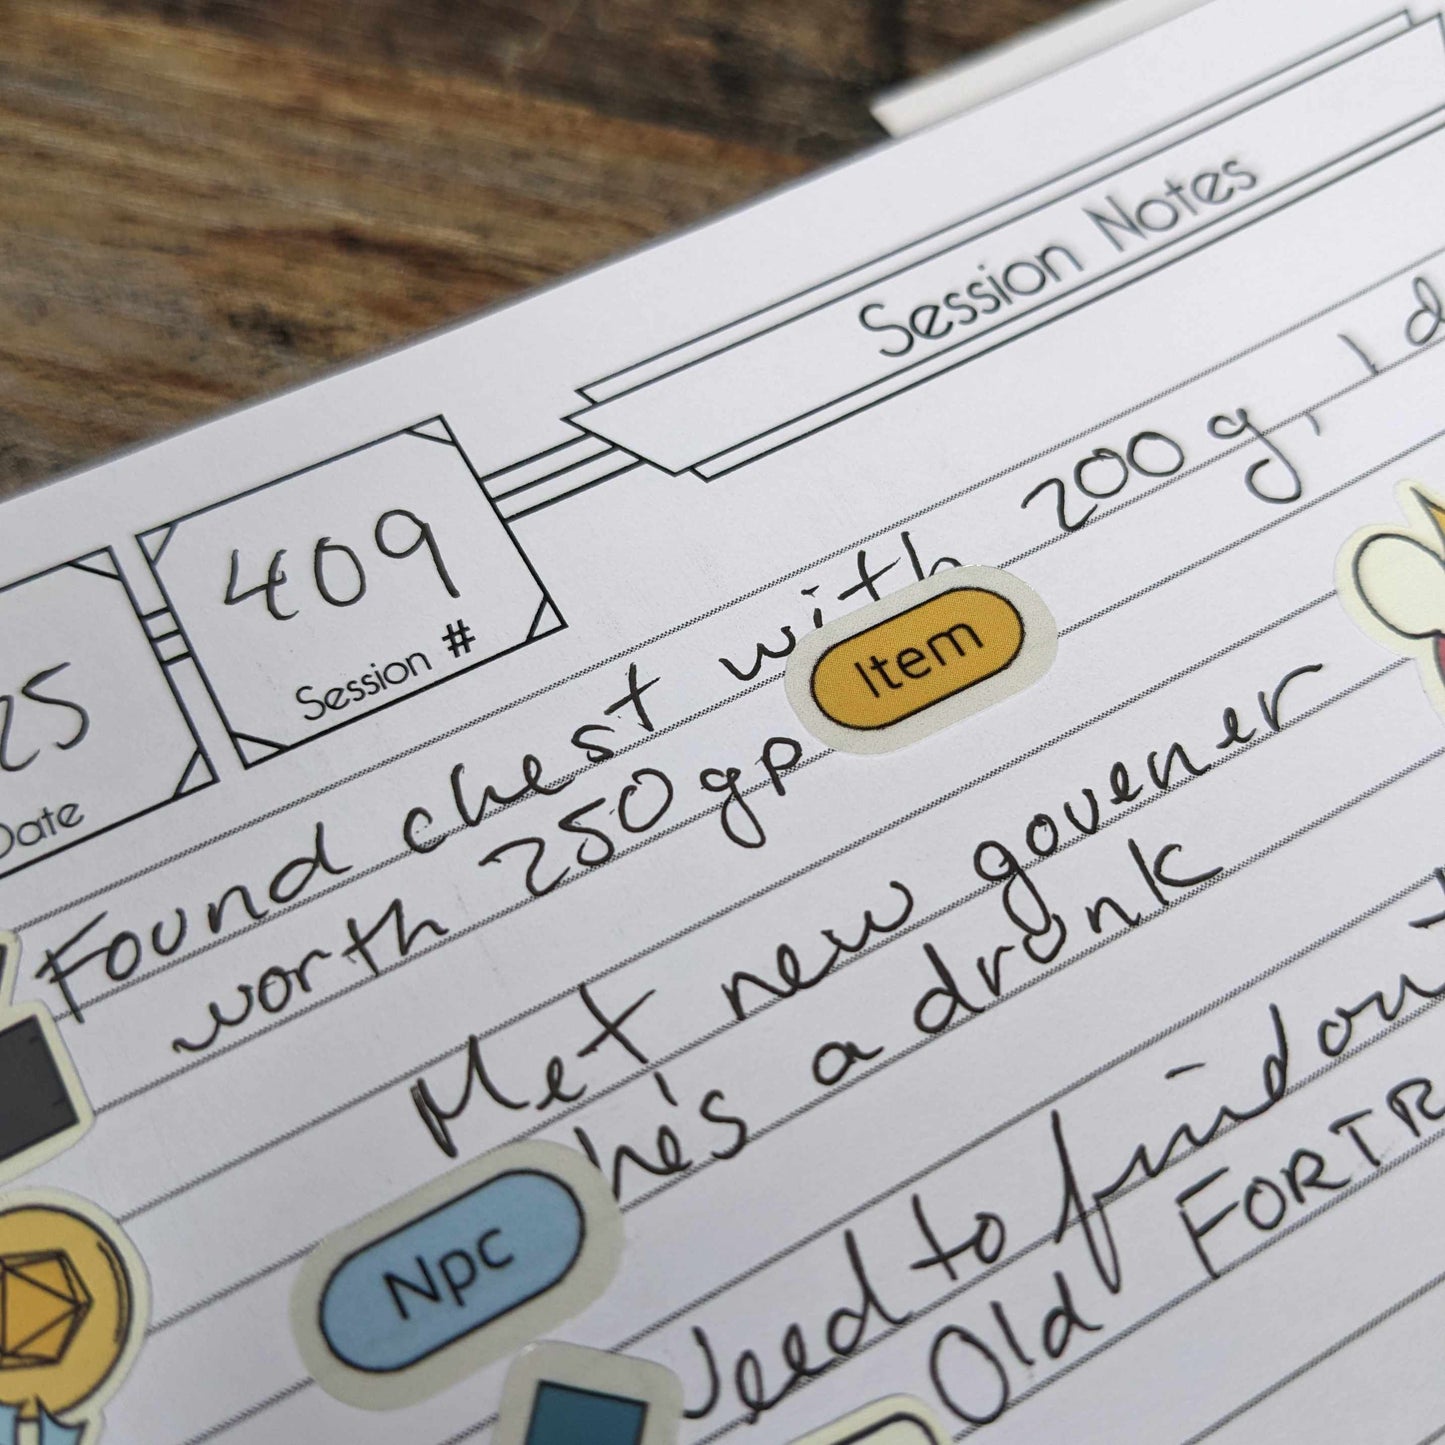 Session Notes
409
Session #
25
Date
Found chest with 200 g, 1 d
worth 250 gp
Item
Met new govener
he's a drunk
Npc
Need to find out
Old FORTR